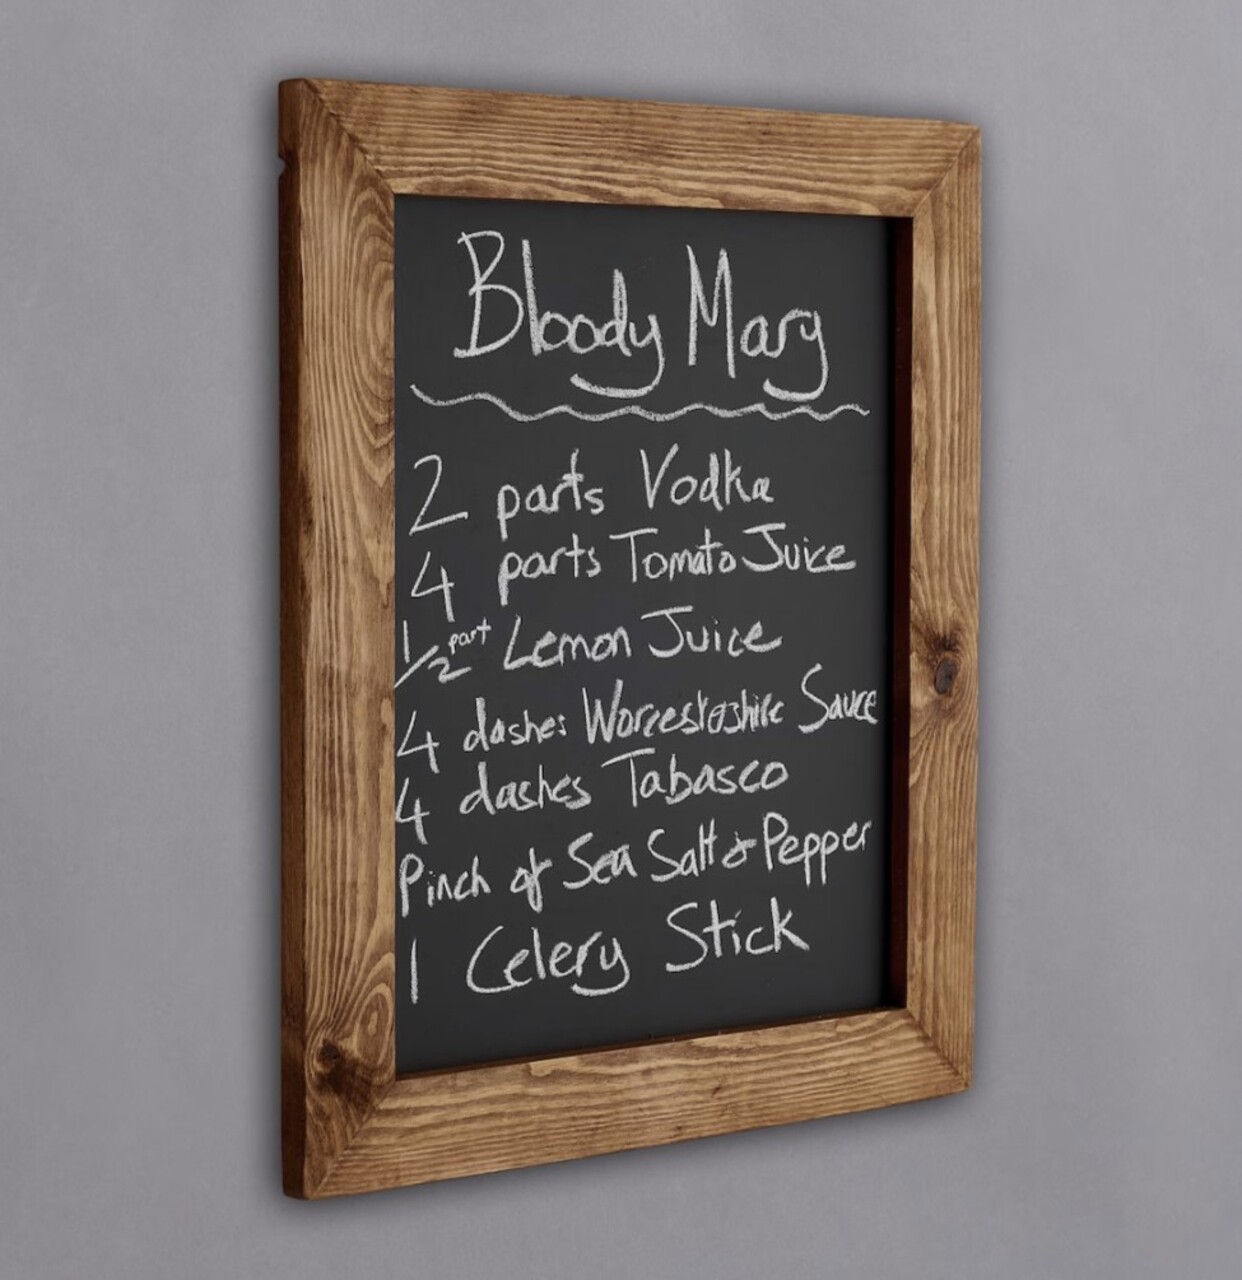 Bloody Mary
2 parts Vodka
4 parts Tomato Juice
1/2 part Lemon Juice
4 dashes Worcestoshire Sauce
4 dashes Tabasco
Pinch of Sea Salt & Pepper
1 Celery Stick